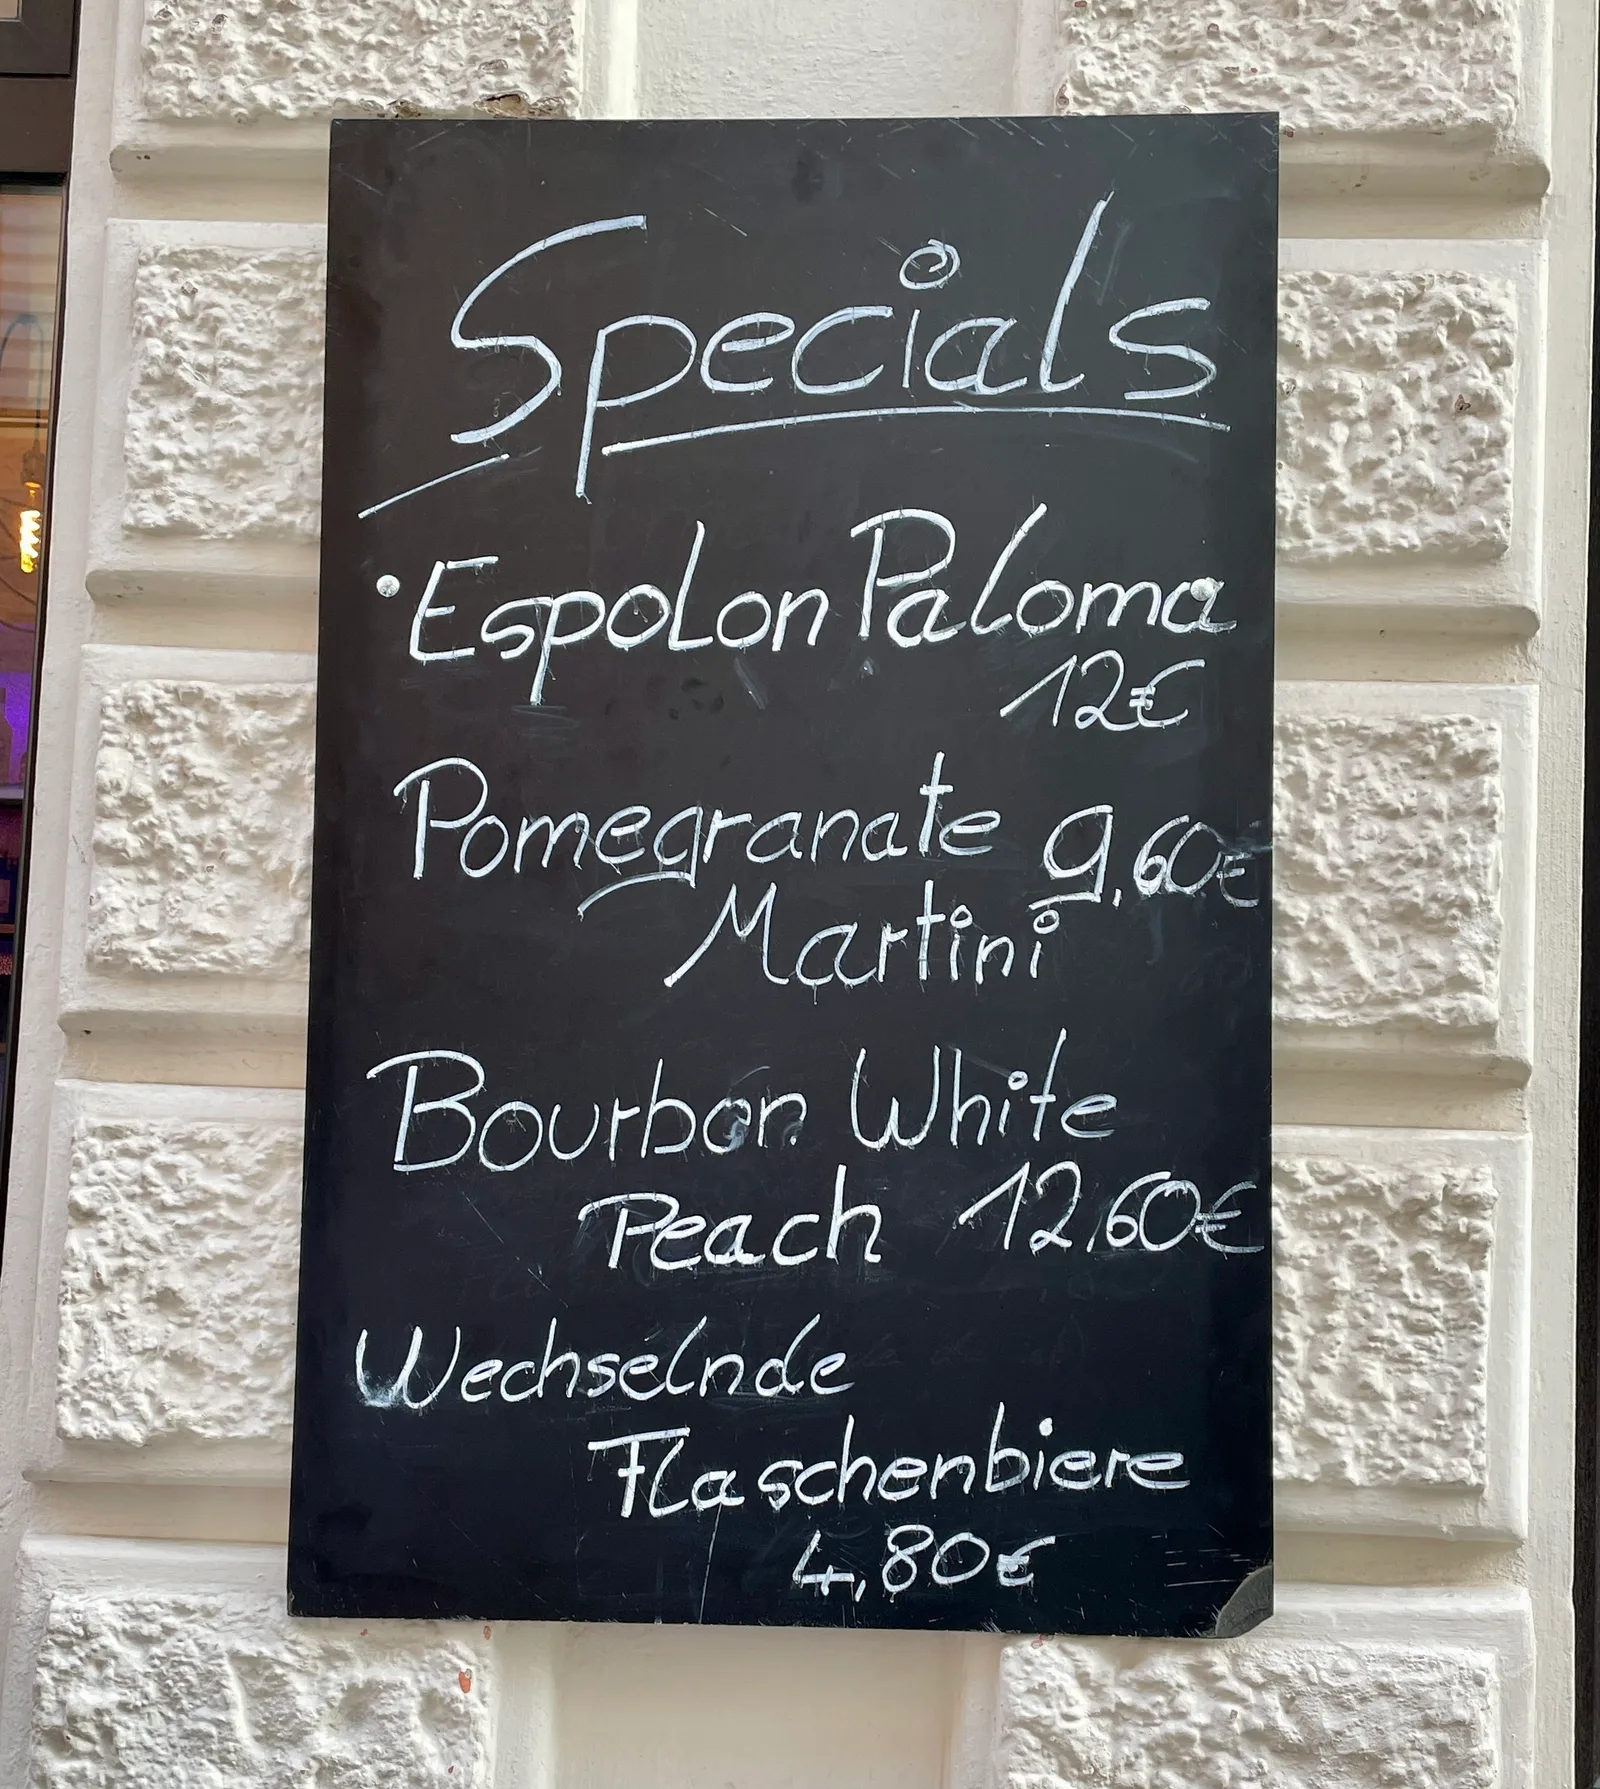 Specials
Espolon Paloma
12€
Pomegranate 9,60€
Martini
Bourbon White
Peach 12,60€
Wechselnde
Flaschenbiere
4,80€